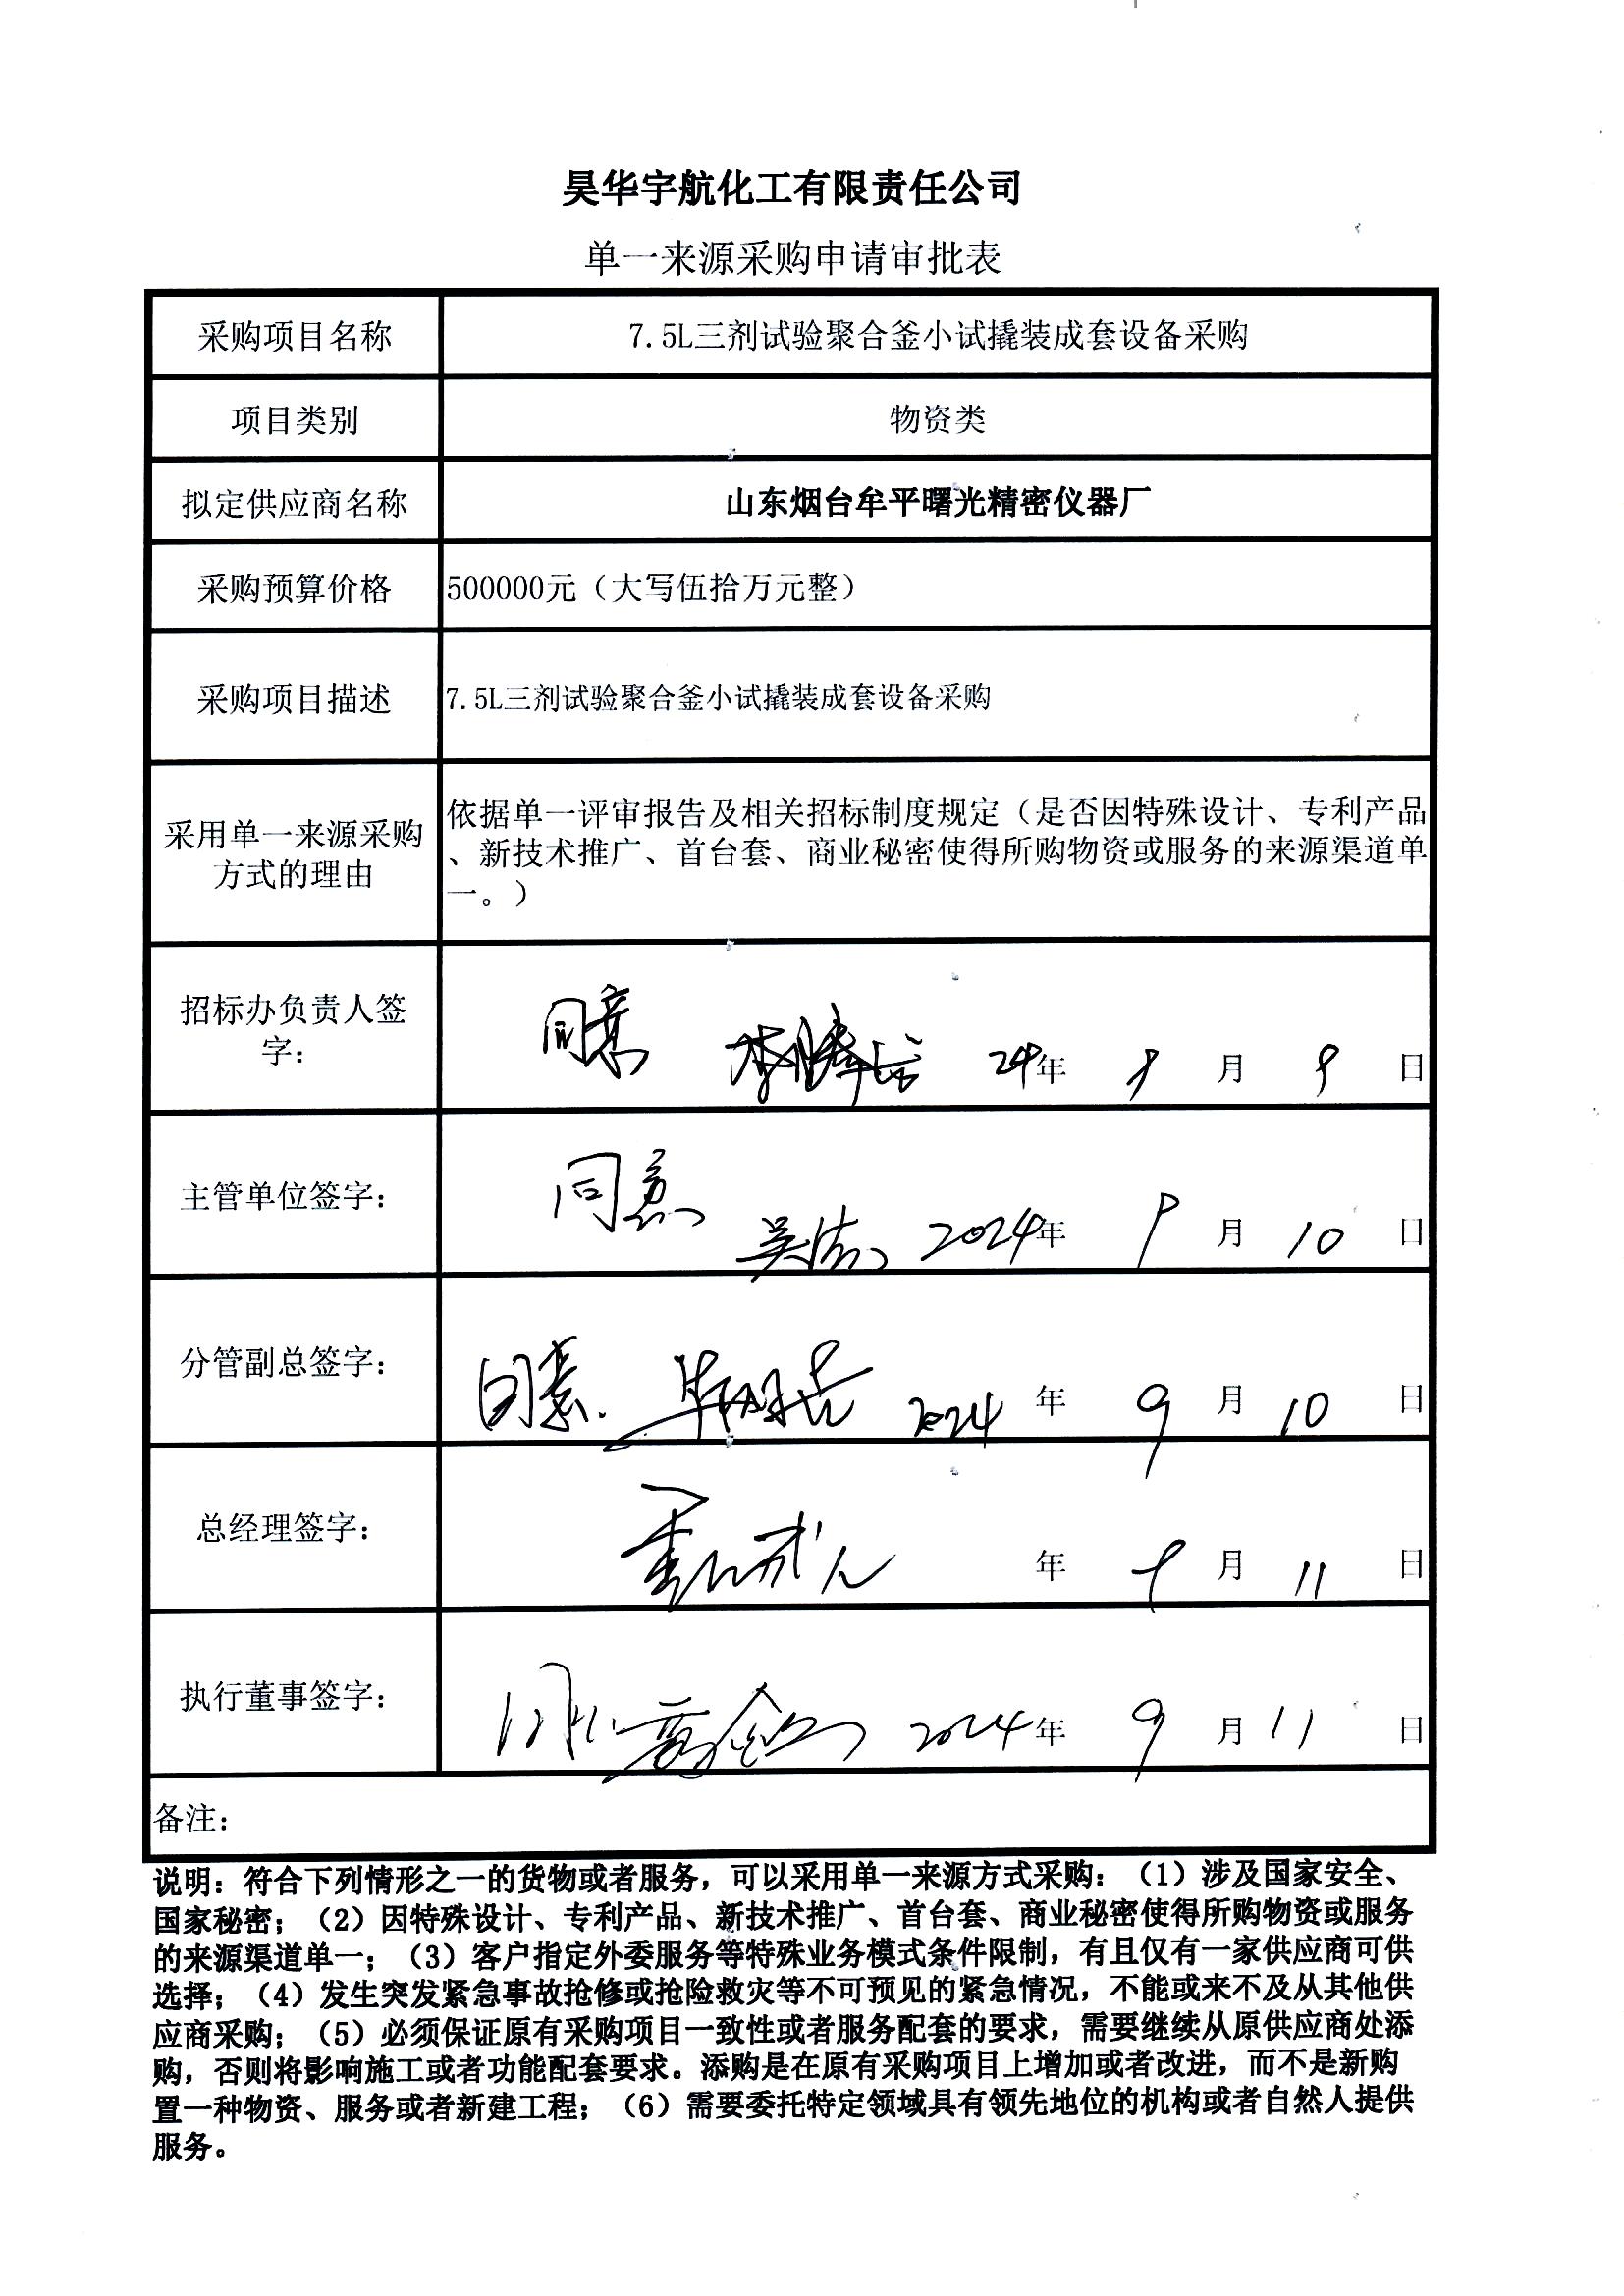 昊华宇航化工有限责任公司
单一来源采购申请审批表
采购项目名称
7.5L三剂试验聚合釜小试撬装成套设备采购
项目类别
物资类
拟定供应商名称
山东烟台牟平曙光精密仪器厂
采购预算价格
500000元（大写伍拾万元整）
采购项目描述
7.5L三剂试验聚合釜小试撬装成套设备采购
采用单一来源采购
方式的理由
依据单一评审报告及相关招标制度规定（是否因特殊设计、专利产品
、新技术推广、首台套、商业秘密使得所购物资或服务的来源渠道单
一。）
招标办负责人签
字：
同意 24年 9 月 9 日
主管单位签字：
同意 2024年 9 月 10 日
分管副总签字：
同意. 2024 年 9 月 10 日
总经理签字：
年 9 月 11 日
执行董事签字：
2024年 9 月 11 日
备注：
说明：符合下列情形之一的货物或者服务，可以采用单一来源方式采购：（1）涉及国家安全、
国家秘密；（2）因特殊设计、专利产品、新技术推广、首台套、商业秘密使得所购物资或服务
的来源渠道单一；（3）客户指定外委服务等特殊业务模式条件限制，有且仅有一家供应商可供
选择；（4）发生突发紧急事故抢修或抢险救灾等不可预见的紧急情况，不能或来不及从其他供
应商采购；（5）必须保证原有采购项目一致性或者服务配套的要求，需要继续从原供应商处添
购，否则将影响施工或者功能配套要求。添购是在原有采购项目上增加或者改进，而不是新购
置一种物资、服务或者新建工程；（6）需要委托特定领域具有领先地位的机构或者自然人提供
服务。